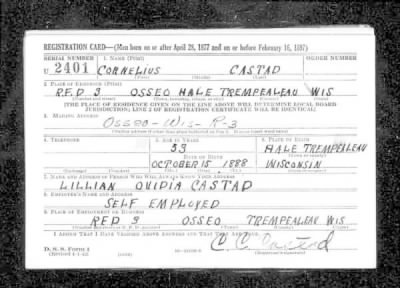 REGISTRATION CARD—(Men born on or after April 28, 1877 and on or before February 16, 1897)
SERIAL NUMBER 1. NAME (Print) ORDER NUMBER
U 2401 CORNELIUS CASTAD
(First) (Middle) (Last)
2. PLACE OF RESIDENCE (Print)
R.F.D 3 OSSEO HALE TREMPEALEAU WIS
(Number and street) (Town, township, village, or city) (County) (State)
[THE PLACE OF RESIDENCE GIVEN ON THE LINE ABOVE WILL DETERMINE LOCAL BOARD
JURISDICTION; LINE 2 OF REGISTRATION CERTIFICATE WILL BE IDENTICAL]
3. MAILING ADDRESS
Osseo-Wis-R-3
[Mailing address if other than place indicated on line 2. If same insert word same]
4. TELEPHONE 5. AGE IN YEARS 6. PLACE OF BIRTH
53 HALE TREMPEALEAU
DATE OF BIRTH (Town or county)
OCTOBER 15 1888 WISCONSIN
(Mo.) (Day) (Yr.) (State or country)
7. NAME AND ADDRESS OF PERSON WHO WILL ALWAYS KNOW YOUR ADDRESS
LILLIAN OVIDIA CASTAD
8. EMPLOYER'S NAME AND ADDRESS
SELF EMPLOYED
9. PLACE OF EMPLOYMENT OR BUSINESS
R.F.D 3 OSSEO TREMPEALEAU WIS
(Number and street or R. F. D. number) (Town) (County) (State)
I AFFIRM THAT I HAVE VERIFIED ABOVE ANSWERS AND THAT THEY ARE TRUE.
D. S. S. Form 1 C. C. Castad
(Revised 4-1-42) (Registrant's signature)